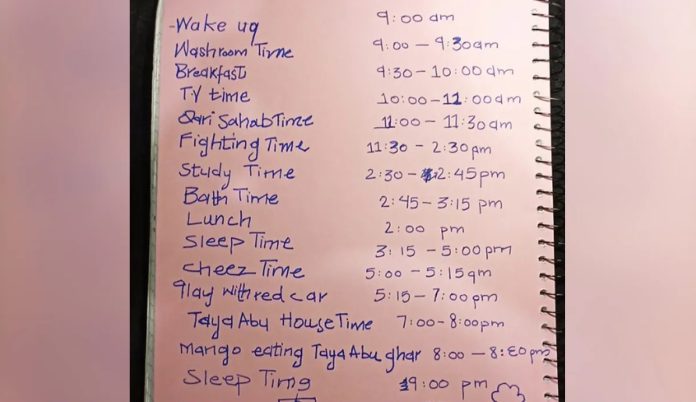 -Wake up 9:00 am
Washroom Time 9:00 - 9:30am
Breakfast 9:30 - 10:00 am
TV time 10:00 - 11:00am
Qari Sahab Time 11:00 - 11:30am
Fighting Time 11:30 - 2:30pm
Study Time 2:30 - 2:45pm
Bath Time 2:45 - 3:15 pm
Lunch 2:00 pm
Sleep Time 3:15 - 5:00pm
cheez Time 5:00 - 5:15pm
Play with red car 5:15 - 7:00pm
Taya Abu House Time 7:00 - 8:00pm
Mango eating Taya Abu ghar 8:00 - 8:30 pm
Sleep Time 9:00 pm